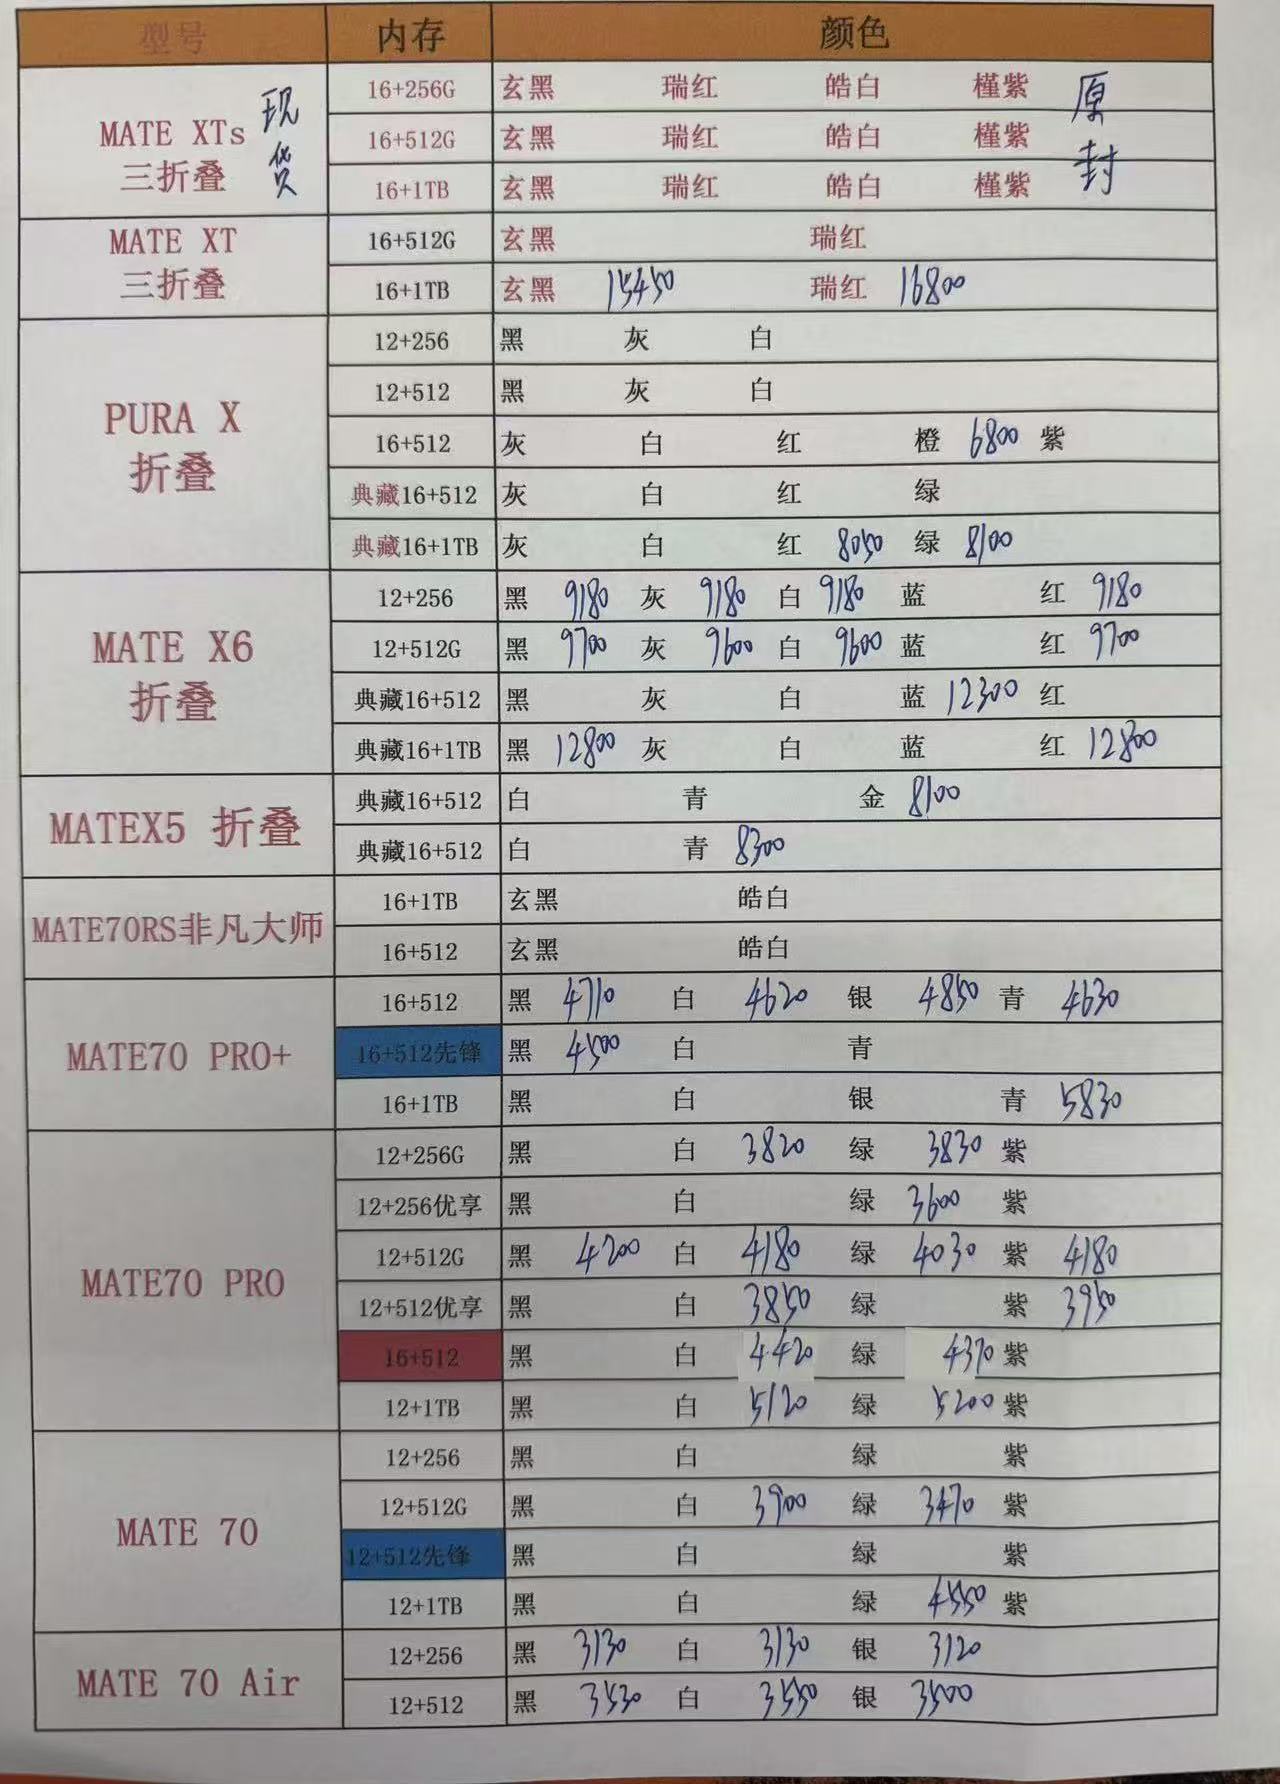 型号 内存 颜色
MATE XTs 三折叠 现货 16+256G 玄黑 瑞红 皓白 槿紫 原封
16+512G 玄黑 瑞红 皓白 槿紫
16+1TB 玄黑 瑞红 皓白 槿紫
MATE XT 三折叠 16+512G 玄黑 瑞红
16+1TB 玄黑 15450 瑞红 16800
PURA X 折叠 12+256 黑 灰 白
12+512 黑 灰 白
16+512 灰 白 红 橙 6800 紫
典藏16+512 灰 白 红 绿
典藏16+1TB 灰 白 红 8050 绿 8100
MATE X6 折叠 12+256 黑 9180 灰 9180 白 9180 蓝 红 9180
12+512G 黑 9700 灰 9600 白 9600 蓝 红 9700
典藏16+512 黑 灰 白 蓝 12300 红
典藏16+1TB 黑 12800 灰 白 蓝 红 12800
MATEX5 折叠 典藏16+512 白 青 金 8100
典藏16+512 白 青 8300
MATE70RS非凡大师 16+1TB 玄黑 皓白
16+512 玄黑 皓白
MATE70 PRO+ 16+512 黑 4710 白 4620 银 4850 青 4630
16+512先锋 黑 4500 白 青
16+1TB 黑 白 银 青 5830
MATE70 PRO 12+256G 黑 白 3820 绿 3830 紫
12+256优享 黑 白 绿 3600 紫
12+512G 黑 4200 白 4180 绿 4030 紫 4180
12+512优享 黑 白 3850 绿 紫 3950
16+512 黑 白 4420 绿 4370 紫
12+1TB 黑 白 5120 绿 5200 紫
MATE 70 12+256 黑 白 绿 紫
12+512G 黑 白 3900 绿 3470 紫
12+512先锋 黑 白 绿 紫
12+1TB 黑 白 绿 4550 紫
MATE 70 Air 12+256 黑 3130 白 3130 银 3120
12+512 黑 3530 白 3550 银 3500